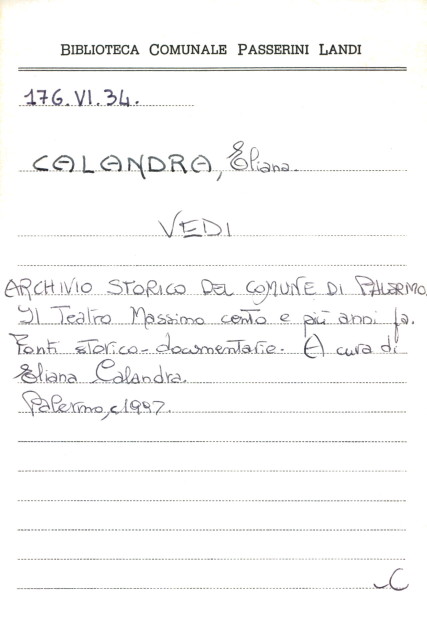 BIBLIOTECA COMUNALE PASSERINI LANDI
176.VI.34.
CALANDRA, Eliana.
VEDI
ARCHIVIO STORICO DEL COMUNE DI PALERMO.
Il Teatro Massimo cento e più anni fa.
Fonti storico-documentarie. A cura di
Eliana Calandra.
Palermo, c1997.
C